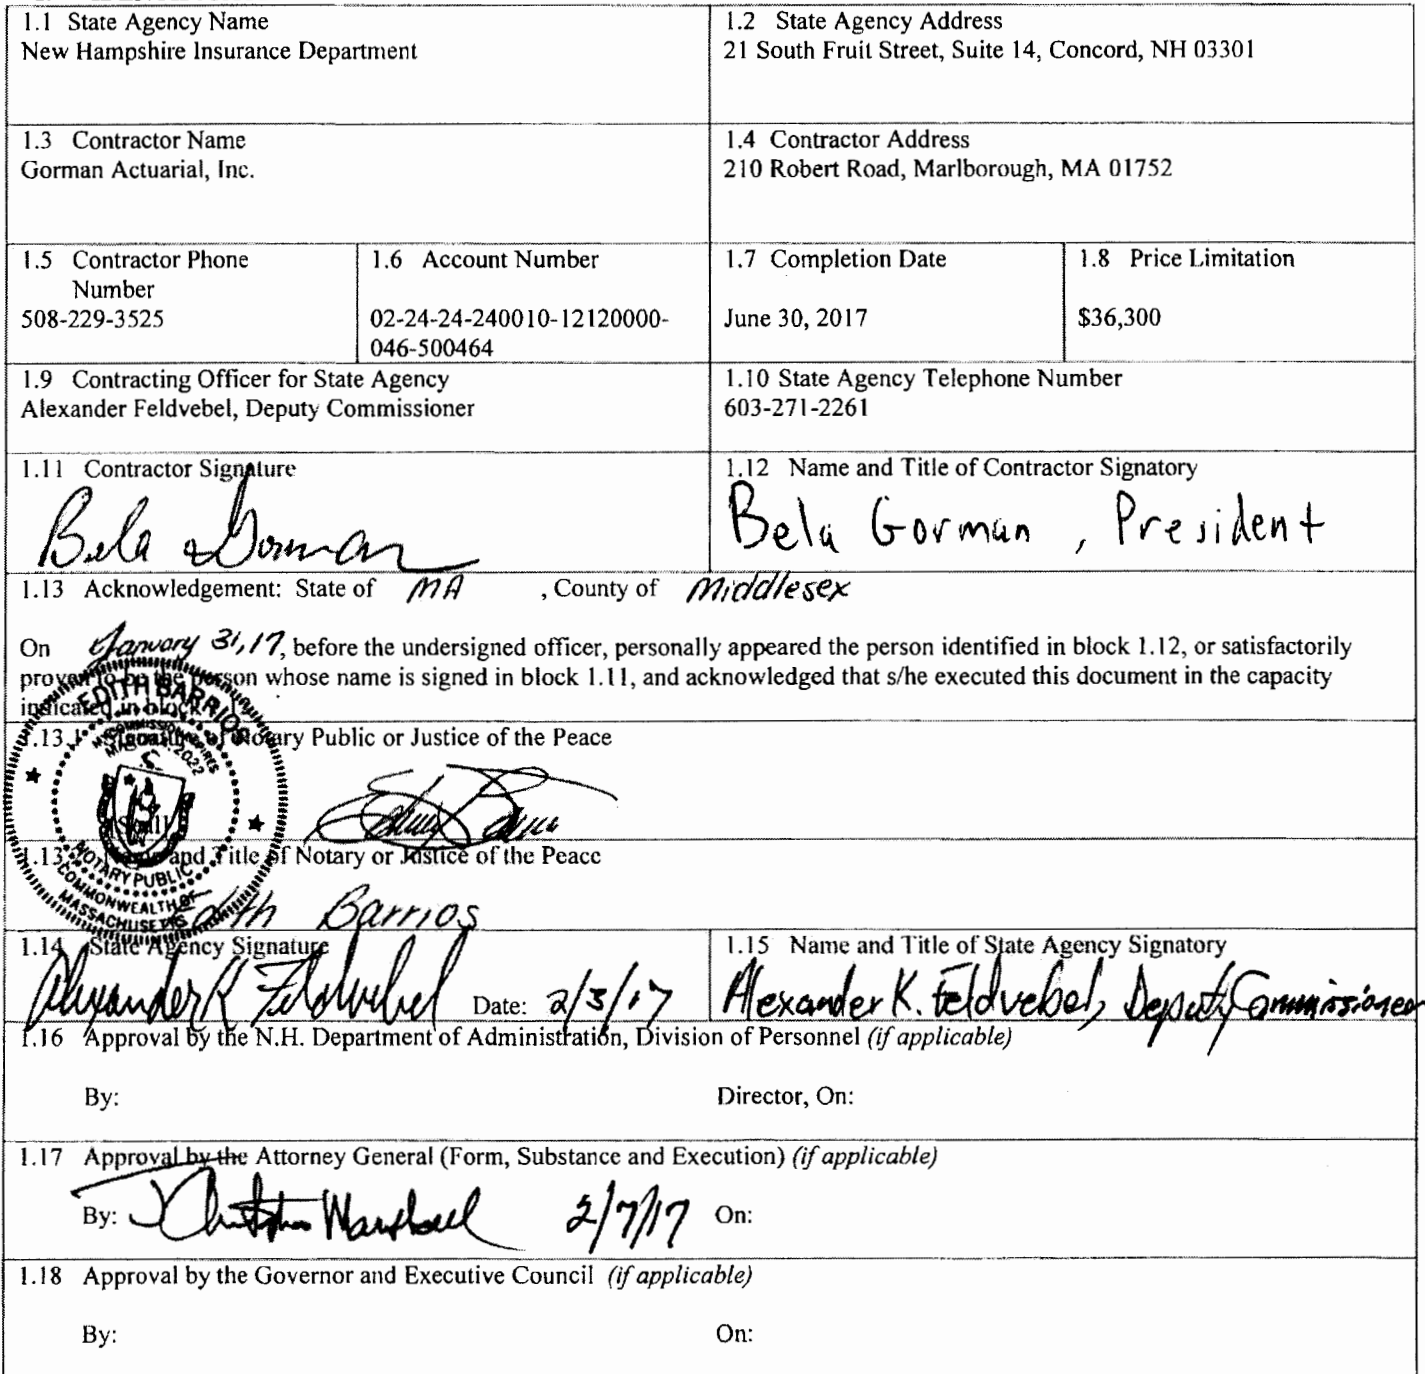 1.1 State Agency Name
New Hampshire Insurance Department
1.2 State Agency Address
21 South Fruit Street, Suite 14, Concord, NH 03301
1.3 Contractor Name
Gorman Actuarial, Inc.
1.4 Contractor Address
210 Robert Road, Marlborough, MA 01752
1.5 Contractor Phone
Number
508-229-3525
1.6 Account Number
02-24-24-240010-12120000-
046-500464
1.7 Completion Date
June 30, 2017
1.8 Price Limitation
$36,300
1.9 Contracting Officer for State Agency
Alexander Feldvebel, Deputy Commissioner
1.10 State Agency Telephone Number
603-271-2261
1.11 Contractor Signature
Bela Gorman
1.12 Name and Title of Contractor Signatory
Bela Gorman, President
1.13 Acknowledgement: State of MA , County of Middlesex
On January 31, 17, before the undersigned officer, personally appeared the person identified in block 1.12, or satisfactorily
proven to be the person whose name is signed in block 1.11, and acknowledged that s/he executed this document in the capacity
indicated in block
EDITH BARRIOS
MY COMMISSION EXPIRES
2022
NOTARY PUBLIC
COMMONWEALTH OF
MASSACHUSETTS
1.13. Signature of Notary Public or Justice of the Peace
[Seal]
1.13. Name and Title of Notary or Justice of the Peace
Edith Barrios
1.14 State Agency Signature
Alexander K Feldvebel Date: 2/3/17
1.15 Name and Title of State Agency Signatory
Alexander K. Feldvebel, Deputy Commissioner
1.16 Approval by the N.H. Department of Administration, Division of Personnel (if applicable)
By: Director, On:
1.17 Approval by the Attorney General (Form, Substance and Execution) (if applicable)
By: J Christopher Marshall 2/7/17 On:
1.18 Approval by the Governor and Executive Council (if applicable)
By: On: